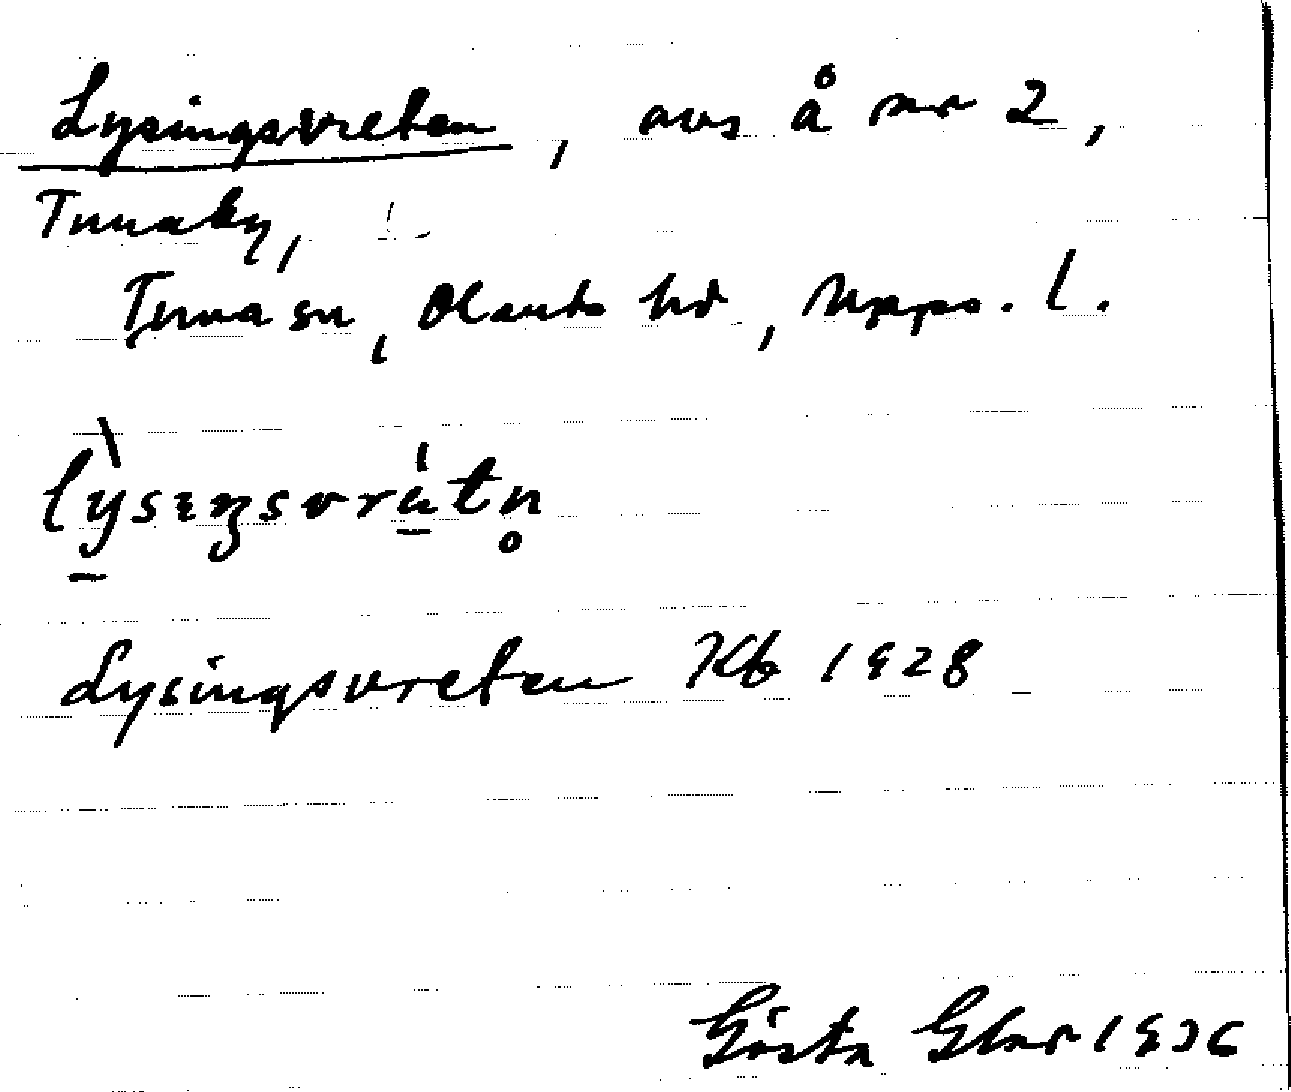 Lysingsvreten, avs å nr 2,
Trunaby,
Trunasn, Olands hd, Upps. l.
Lysingsvreten Kb 1928
Gösta 1936